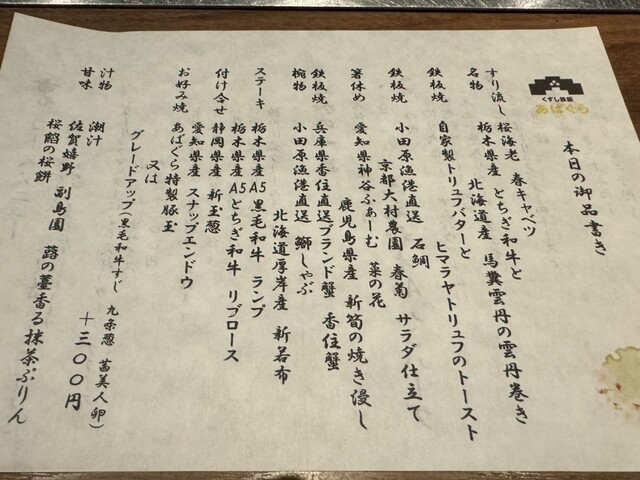 くずし鉄板
あばぐら
本日の御品書き
すり流し 桜海老 春キャベツ
名物 栃木県産 とちぎ和牛と
北海道産 馬糞雲丹の雲丹巻き
鉄板焼 自家製トリュフバターと
ヒマラヤトリュフのトースト
鉄板焼 小田原漁港直送 石鯛
京都大村農園 春菊 サラダ仕立て
箸休め 愛知県神谷ふぁーむ 菜の花
鹿児島県産 新筍の焼き浸し
鉄板焼 兵庫県香住直送ブランド蟹 香住蟹
椀物 小田原漁港直送 鰤しゃぶ
北海道厚岸産 新若布
ステーキ 栃木県産A5黒毛和牛 ランプ
栃木県産A5とちぎ和牛 リブロース
付け合せ 静岡県産 新玉葱
愛知県産 スナップエンドウ
お好み焼 あばぐら特製豚玉
又は
グレードアップ(黒毛和牛すじ 九条葱 茜美人卵)
+300円
汁物 潮汁
甘味 佐賀嬉野 副島園 蕗の薹香る抹茶ぷりん
桜餡の桜餅